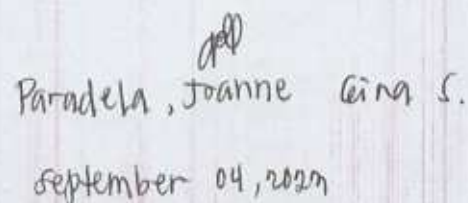 Paradela, Joanne Geina S.
September 04, 202